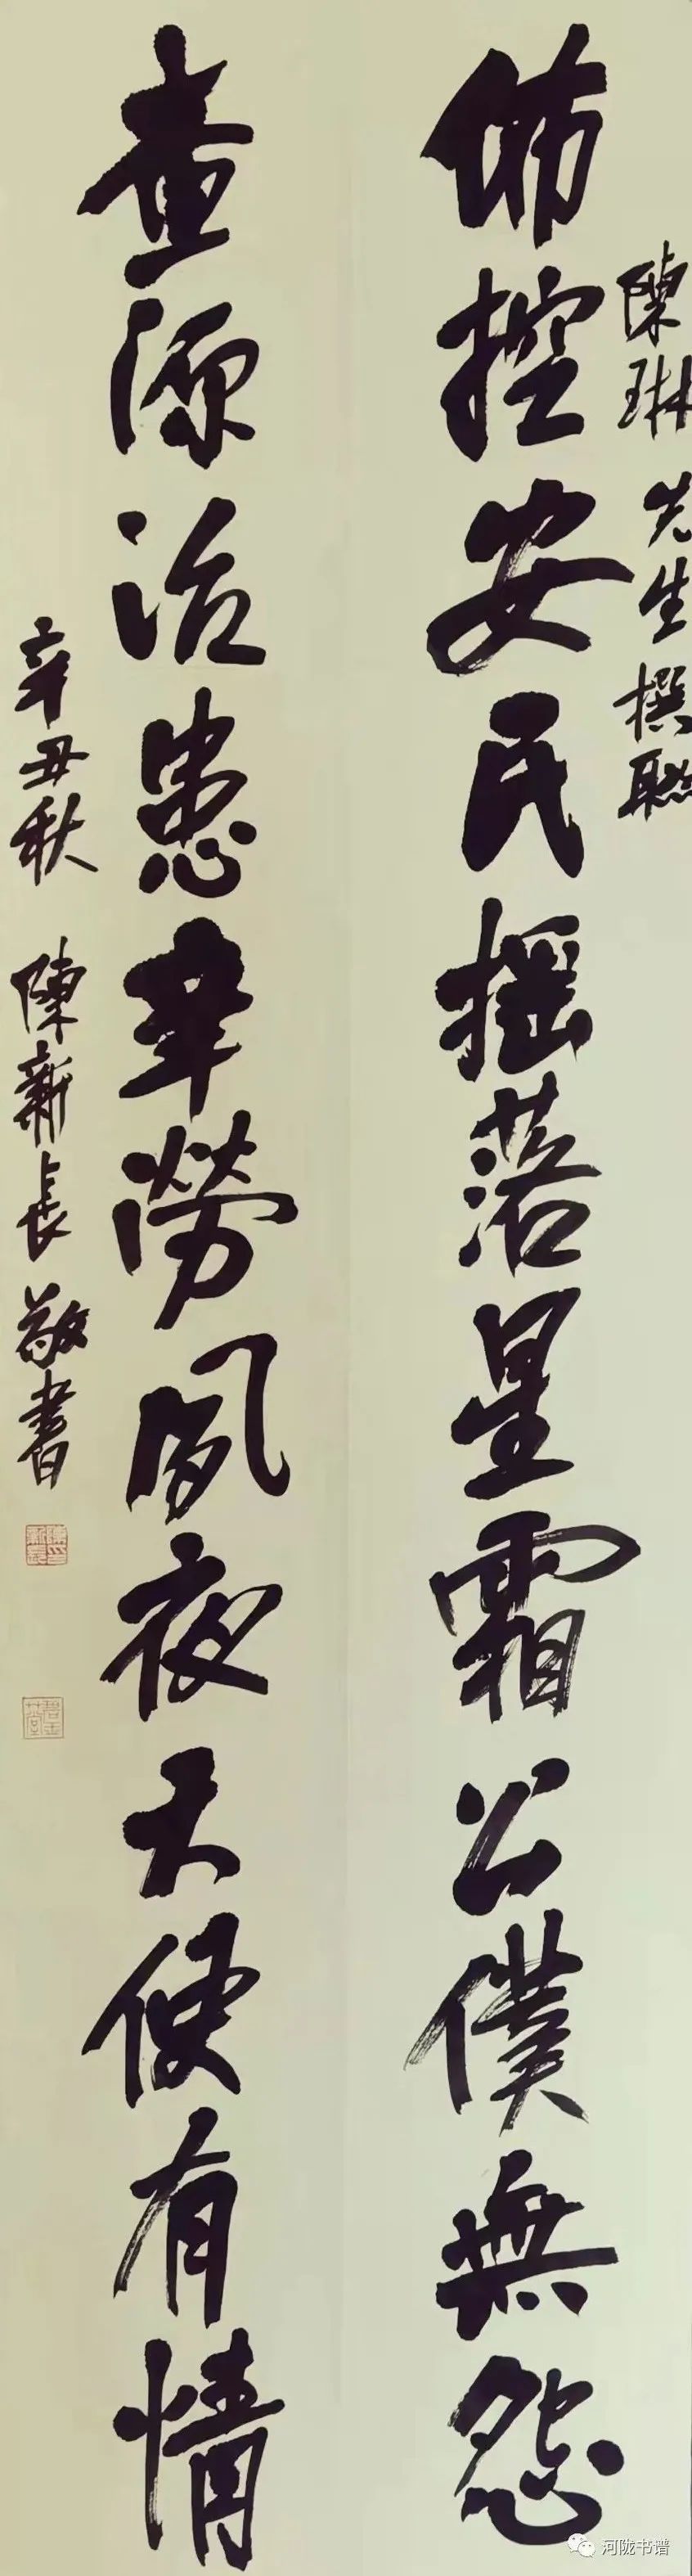 陳琳先生撰聯
佈控安民摇落星霜公僕無怨
查源治患辛勞夙夜天使有情
辛丑秋 陳新長敬書
河陇书谱